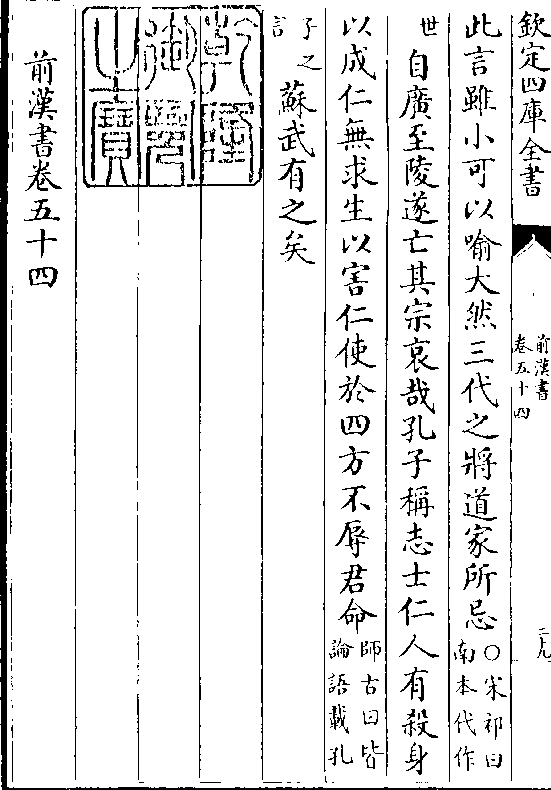 欽定四庫全書
前漢書
卷五十四
二九
此言雖小可以喻大然三代之將道家所忌○宋祁曰南本代作
世自廣至陵遂亡其宗哀哉孔子稱志士仁人有殺身
以成仁無求生以害仁使於四方不辱君命師古曰皆論語載孔
子之言蘇武有之矣
乾隆御覽之寶
前漢書卷五十四